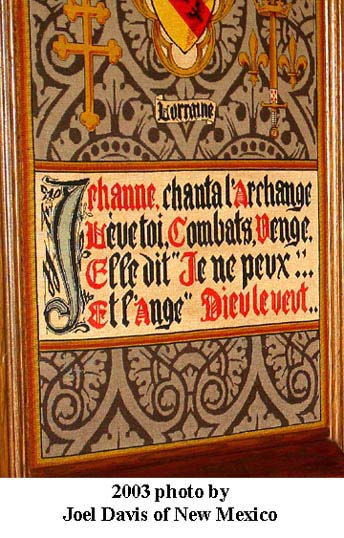 Lorraine
Jehanne, chanta l'Archange
Lève toi, Combats, Venge,
Elle dit "Je ne peux"...
Et l'Ange" Dieu le veut..
2003 photo by
Joel Davis of New Mexico